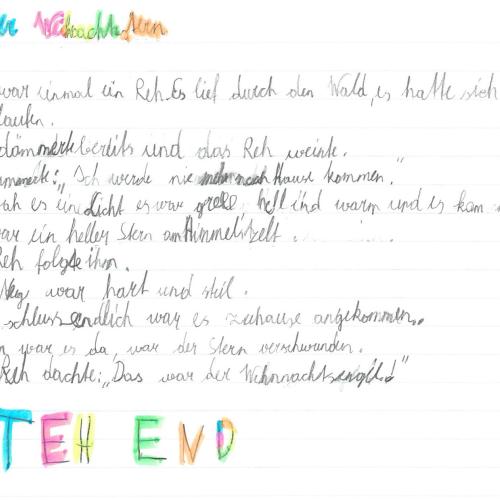 er Weihnachtsstern
war einmal ein Reh. Es lief durch den Wald, es hatte sich
laufen.
dämmerte bereits und das Reh weinte.
jammerte: „Ich werde nie mehr nach Hause kommen."
sah es ein Licht es war grell, hell und warm und es kam
war ein heller Stern am Himmelszelt.
Reh folgte ihm.
Weg war hart und steil.
schlussendlich war es zuhause angekommen.
n war es da, war der Stern verschwunden.
Reh dachte: „Das war der Weihnachtsengel!"
TEH END